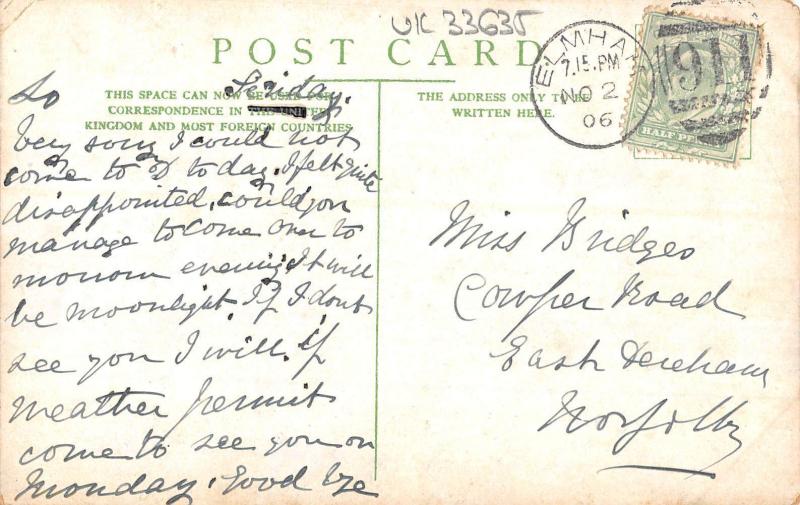 UK 33635
POST CARD
THIS SPACE CAN NOW BE USED FOR
CORRESPONDENCE IN THE UNITED
KINGDOM AND MOST FOREIGN COUNTRIES
THE ADDRESS ONLY TO BE
WRITTEN HERE.
ELMHAM
7.15.PM
NO 2
06
911
HALF PE
Friday.
So
Very sorry I could not
come to D to day. I felt quite
disappointed, could you
manage to come over to
morrow evening. It will
be moonlight. If I dont
see you I will, if
weather permit
come to see you on
Monday. Good bye
Miss Bridges
Cowper Road
East Dereham
Norfolk